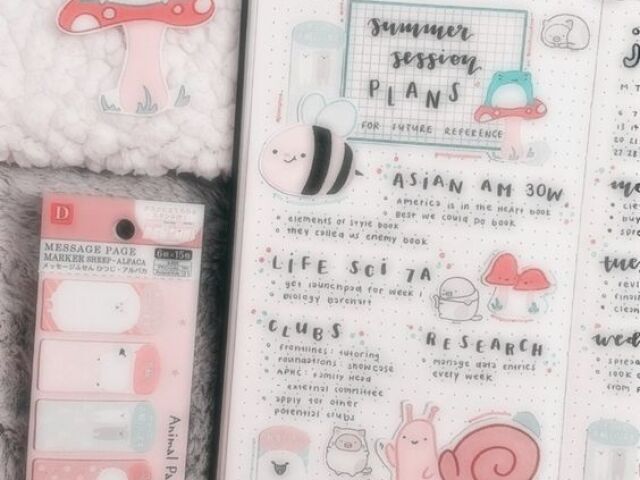 summer
session
PLANS
FOR FUTURE REFERENCE
ASIAN AM 30W
America is in the Heart book
Best we could do book
elements of style book
they called us enemy book
LIFE SCI 7A
get launchpad for week 1
biology Barchart
CLUBS
frontlines: tutoring
foundations: showcase
APHC: family head
- external committee
apply for other
potential clubs
RESEARCH
manage data entries
every week
M T
6 7
13 14
20 21
27 28
D
MESSAGE PAGE
MARKER SHEEP-ALPACA
メッセージふせん ひつじ・アルパカ
6柄×15枚
Animal Pa